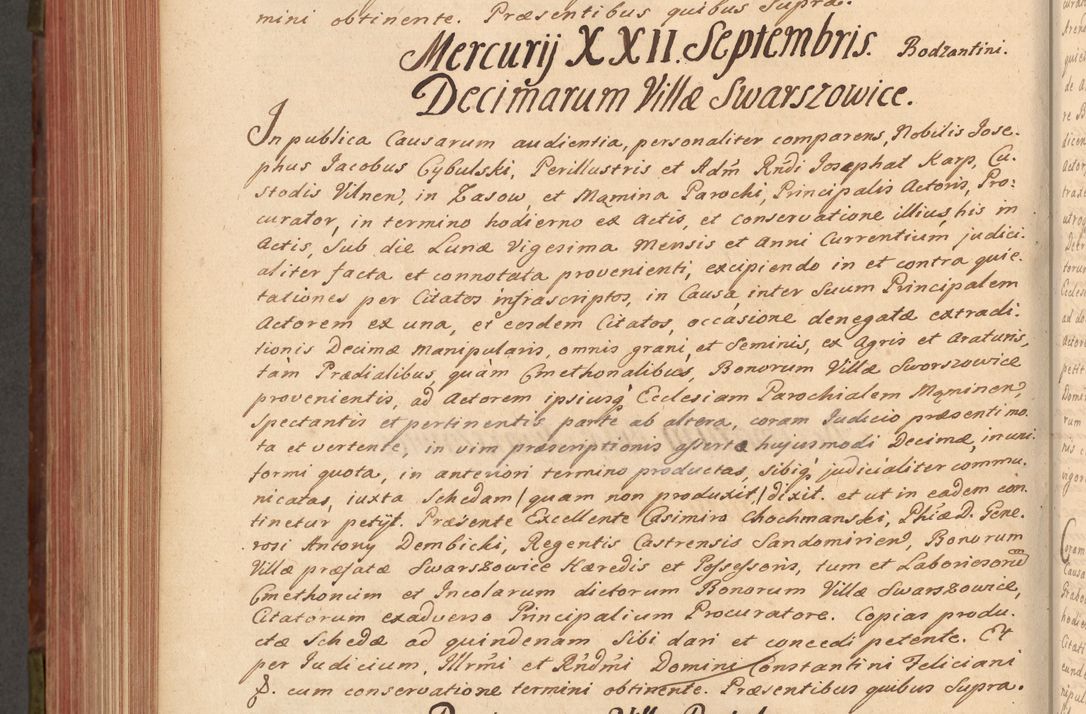 mini obtinente. Præsentibus quibus Supra.
Mercurij XXII. Septembris. Bodzantini.
Decimarum Villæ Swarszowice.
In publica Causarum audientia, personaliter comparens, Nobilis Jose-
phus Jacobus Cybulski, Perillustris et Adm̃ Rndi Josephat Karp, Cu-
stodis Vilnen, in Zasow, et Mąmina Parochi, Principalis Actoris, Pro:
curator, in termino hodierno ex Actis, et conservatione illius, his in
Actis, Sub die Lunæ Vigesima Mensis et Anni Currentium judici-
aliter facta et connotata provenienti, excipiendo in et contra quie-
tationes per Citatos infrascriptos, in Causa inter Suum Principalem
Actorem ex una, et eosdem Citatos, occasione denegatæ extradi-
tionis Decimæ Manipularis, omnis grani, et Seminis, ex Agris et Araturis,
tàm Prædialibus, quàm Cmethonalibus, Bonorum Villæ Sworszowice
provenientis, ad Actorem ipsiusq̃ Ecclesiam Parochialem Mąminen,
Spectantis et pertinentis parte ab altera, coram Judicio præsenti mo-
ta et vertente, in vim præscriptionis assertæ hujusmodi Decimæ, in uni-
formi quota, in anteriori termino productas, sibiq̃ judicialiter commu-
nicatas, iuxta Schedam /quam non produxit/ dixit. et ut in eadem con-
tinetur petijt. Præsente Excellente Casimiro Chochmanski, Phiæ D. Gene-
rosi Antony Dembicki, Regentis Castrensis Sandomirien, Bonorum
Villæ præfatæ Swarszowice Hæredis et Possessoris, tum et Laboriosorum
Cmethonum et Incolarum dictorum Bonorum Villæ Swarszowice,
Citatorum exadverso Principalium Procuratore. Copias produ-
ctæ Schedæ ad quindenam Sibi dari et concedi petente. Et
per Judicium, Illrmi et Rndmi Domini Constantini Feliciani
cum conservatione termini obtinente. Præsentibus quibus Supra.